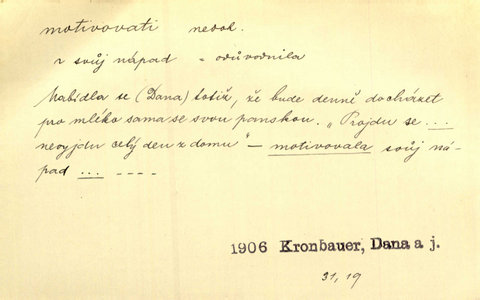 motivovati nedok.
~ svůj nápad = odůvodnila
Nabídla se (Dana) totiž, že bude denně docházet
pro mléko sama se svou panskou. „Projdu se ...
nevyjdu celý den z domu" – motivovala svůj ná-
pad ... ----
1906 Kronbauer, Dana a j.
31, 19